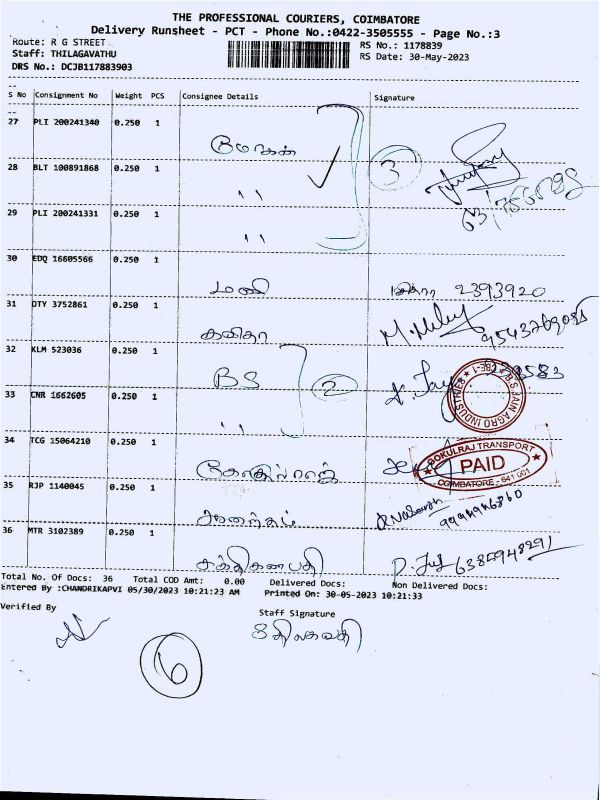 THE PROFESSIONAL COURIERS, COIMBATORE
Delivery Runsheet - PCT - Phone No.:0422-3505555 - Page No.:3
Route: R G STREET
Staff: THILAGAVATHU
DRS No.: DCJB117883903
RS No.: 1178839
RS Date: 30-May-2023
S No Consignment No Weight PCS Consignee Details Signature
27 PLI 200241340 0.250 1
மோகன் 3
28 BLT 100891868 0.250 1
''
29 PLI 200241331 0.250 1
''
30 EDQ 16605566 0.250 1
மணி 2393920
31 DTY 3752861 0.250 1
கவிதா
32 KLM 523036 0.250 1
BS 2
33 CNR 1662605 0.250 1
''
B S JAIN AGRO INDUSTRIES
34 TCG 15064210 0.250 1
கோகுல்ராஜ்
GOKULRAJ TRANSPORT
PAID
COIMBATORE - 641 001
35 RJP 1140045 0.250 1
36 MTR 3102389 0.250 1
சக்திகணபதி 6385948291
Total No. Of Docs: 36 Total COD Amt: 0.00 Delivered Docs: Non Delivered Docs:
Entered By :CHANDRIKAPVI 05/30/2023 10:21:23 AM Printed On: 30-05-2023 10:21:33
Verified By Staff Signature
திலகவதி
6